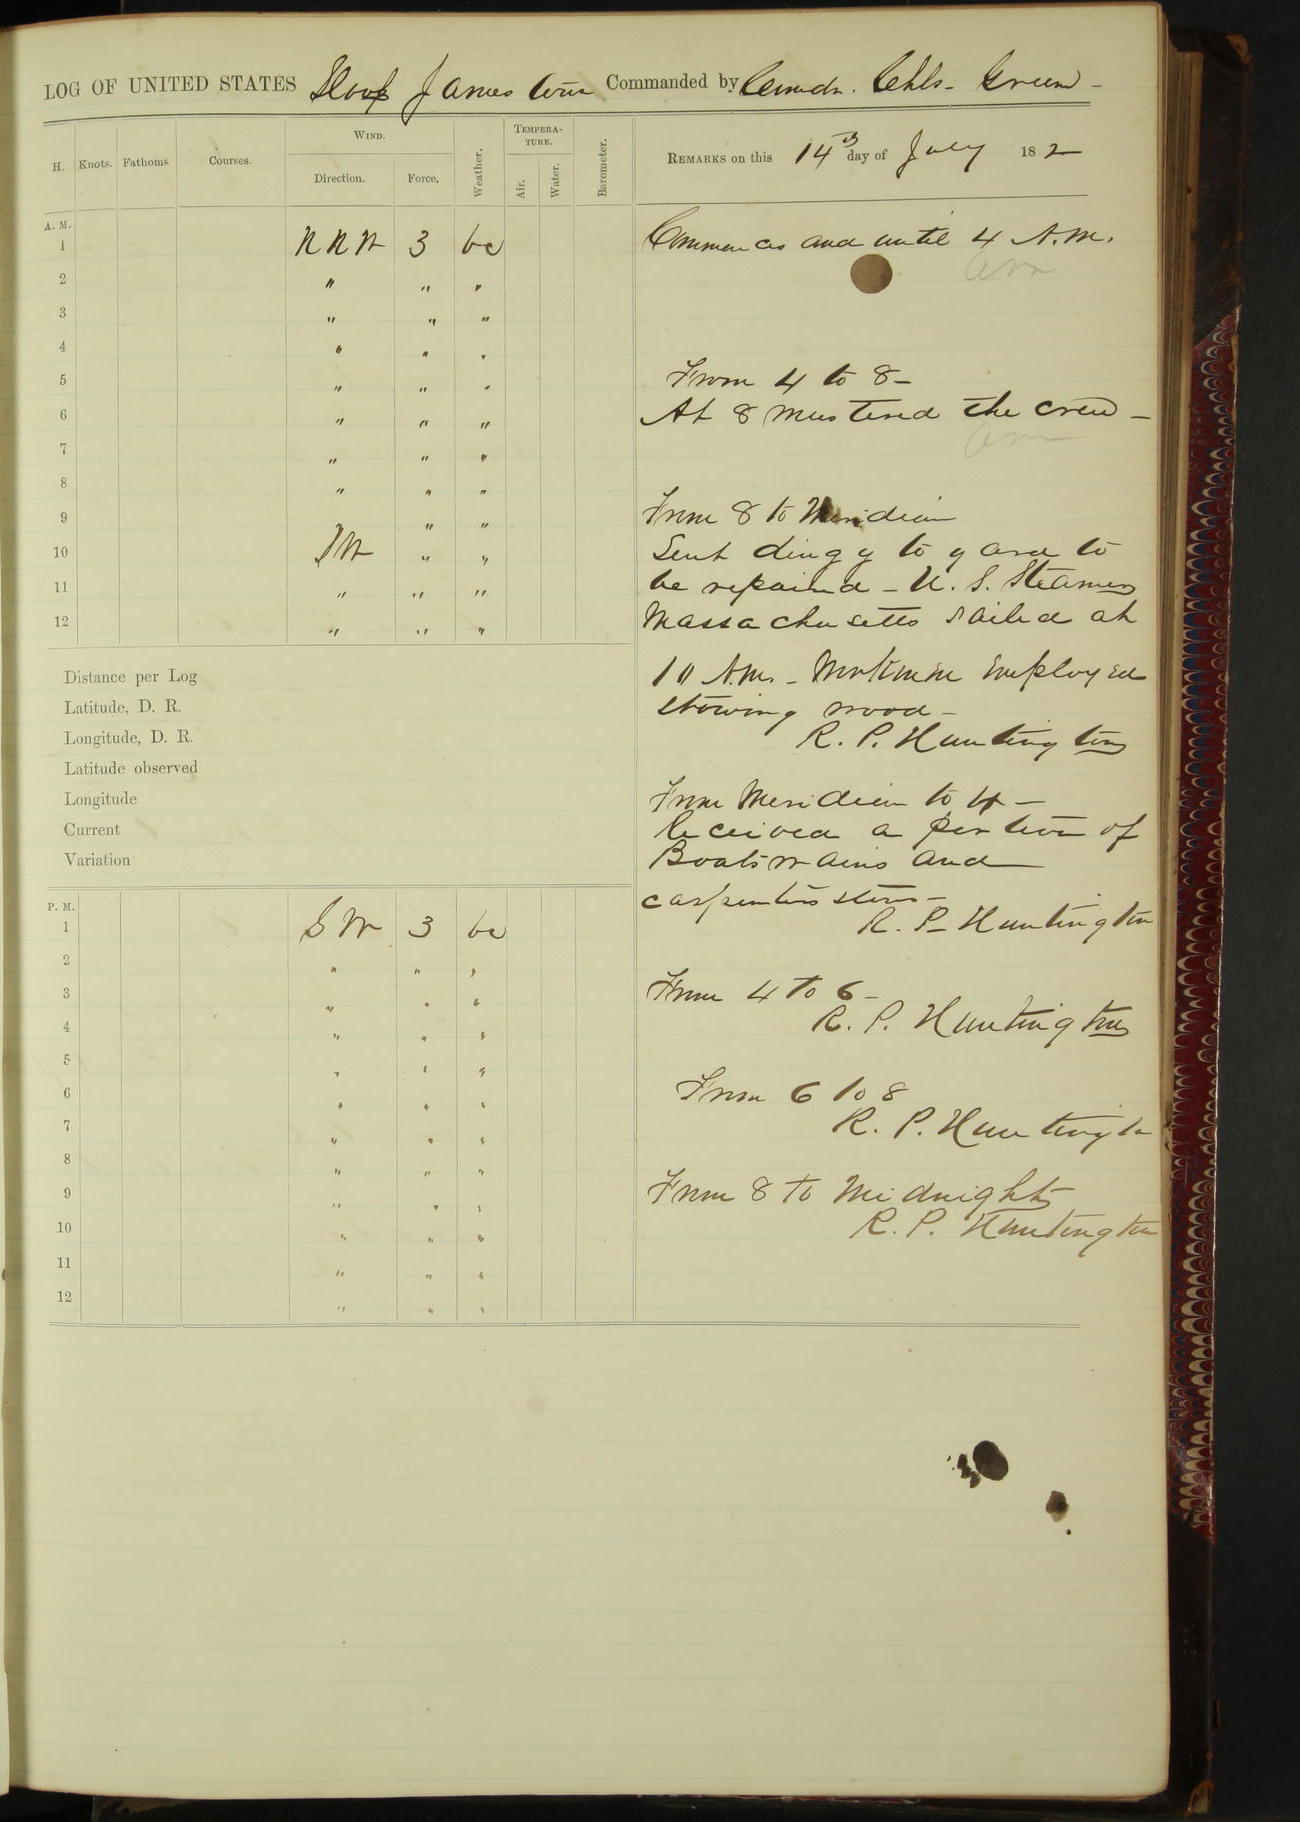 LOG OF UNITED STATES Sloop Jamestown Commanded by Comdr. Chls. Green -
H. Knots. Fathoms Courses. WIND. Direction. Force. Weather. TEMPERA-TURE. Air. Water. Barometer. REMARKS on this 14th day of July 18 2
A. M.
1 NNW 3 bc
2 " " "
3 " " "
4 " " "
5 " " "
6 " " "
7 " " "
8 " " "
9 " "
10 SW " "
11 " " "
12 " " "
Commences and until 4 A.M.
From 4 to 8 -
At 8 mustered the crew -
From 8 to Meridian
Sent dingy to yard to
be repaired - U. S. Steamer
Massachusetts sailed at
10 A.M. - Workmen employed
stowing wood -
R. P. Huntington
From Meridian to 4 -
Received a portion of
Boatswains and
carpenters stores -
R. P. Huntington
From 4 to 6 -
R. P. Huntington
From 6 to 8
R. P. Huntington
From 8 to Midnight
R. P. Huntington
Distance per Log
Latitude, D. R.
Longitude, D. R.
Latitude observed
Longitude
Current
Variation
P. M.
1 SW 3 bc
2 " " "
3 " " "
4 " " "
5 " " "
6 " " "
7 " " "
8 " " "
9 " " "
10 " " "
11 " " "
12 " " "